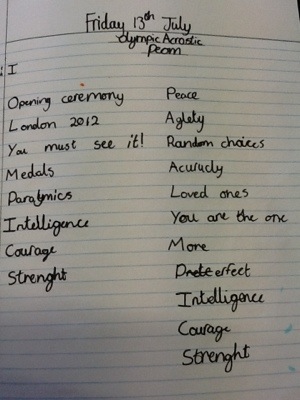 Friday 13th July
Olympic Acrostic
Peom
I
Opening ceremony
London 2012
You must see it!
Medals
Paralymics
Intelligence
Courage
Strenght
Peace
Aglety
Random choices
Acurucly
Loved ones
You are the one
More
Intelligence
Courage
Strenght